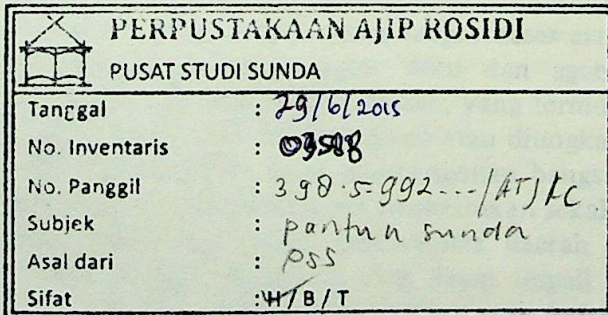 PERPUSTAKAAN AJIP ROSIDI
PUSAT STUDI SUNDA
Tanggal : 29/6/2015
No. Inventaris : 03508
No. Panggil : 398.5992.../ATJ/C
Subjek : pantun sunda
Asal dari : PSS
Sifat : H/B/T